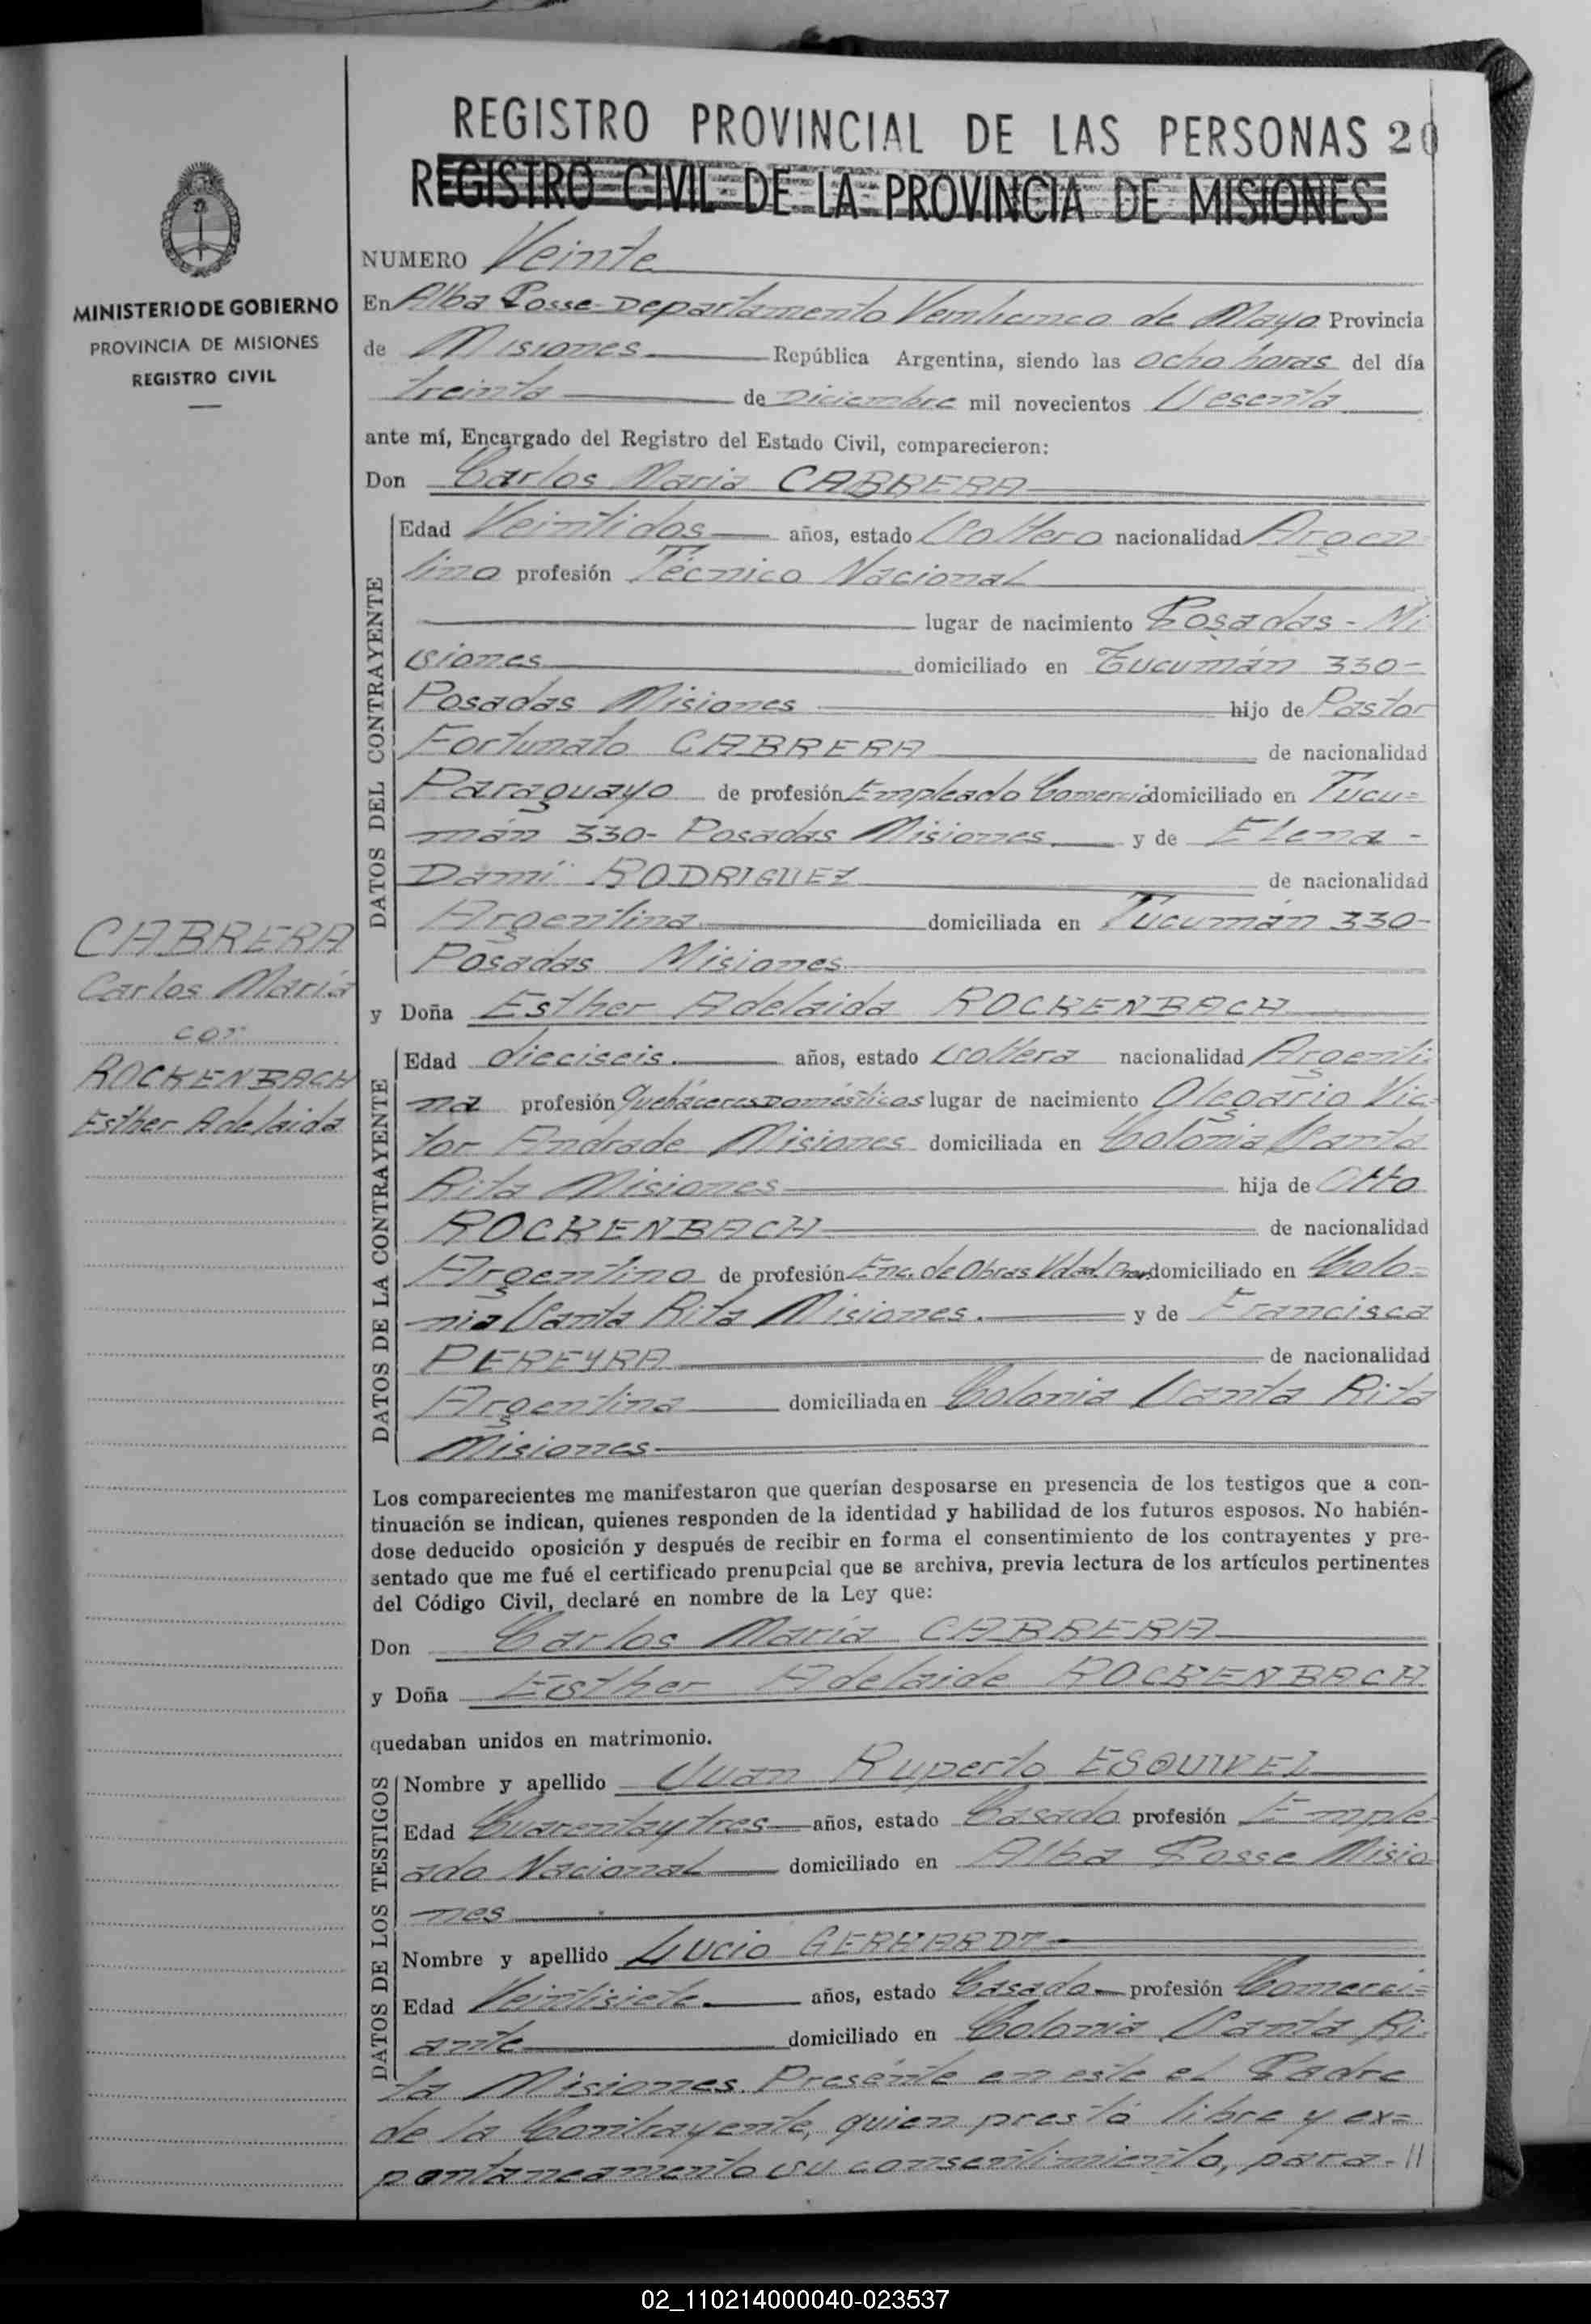 REGISTRO PROVINCIAL DE LAS PERSONAS 20
REGISTRO CIVIL DE LA PROVINCIA DE MISIONES
MINISTERIO DE GOBIERNO
PROVINCIA DE MISIONES
REGISTRO CIVIL
NUMERO Veinte
En Alba Posse-Departamento Veinticinco de Mayo Provincia
de Misiones República Argentina, siendo las ocho horas del día
treinta de Diciembre mil novecientos Sesenta
ante mí, Encargado del Registro del Estado Civil, comparecieron:
Don Carlos Maria CABRERA
DATOS DEL CONTRAYENTE
Edad Veintidos años, estado Soltero nacionalidad Argen
tino profesión Técnico Nacional
lugar de nacimiento Posadas - Mi
siones domiciliado en Tucumán 330-
Posadas Misiones hijo de Pastor
Fortunato CABRERA de nacionalidad
Paraguayo de profesión Empleado Comercio domiciliado en Tucu=
mán 330- Posadas Misiones y de Elena -
Damí RODRIGUEZ de nacionalidad
Argentina domiciliada en Tucumán 330-
Posadas Misiones
CABRERA
Carlos María
con
ROCKENBACH
Esther Adelaida
y Doña Esther Adelaida ROCKENBACH
DATOS DE LA CONTRAYENTE
Edad dieciseis años, estado soltera nacionalidad Argenti
na profesión Quehaceres Domésticos lugar de nacimiento Olegario Vic
tor Andrade Misiones domiciliada en Colonia Santa
Rita Misiones hija de Otto
ROCKENBACH de nacionalidad
Argentino de profesión Enc. de Obras Vdad. Prov. domiciliado en Colo=
nia Santa Rita Misiones. y de Francisca
PEREYRA de nacionalidad
Argentina domiciliada en Colonia Santa Rita
Misiones
Los comparecientes me manifestaron que querían desposarse en presencia de los testigos que a con-
tinuación se indican, quienes responden de la identidad y habilidad de los futuros esposos. No habién-
dose deducido oposición y después de recibir en forma el consentimiento de los contrayentes y pre-
sentado que me fué el certificado prenupcial que se archiva, previa lectura de los artículos pertinentes
del Código Civil, declaré en nombre de la Ley que:
Don Carlos María CABRERA
y Doña Esther Adelaide ROCKENBACH
quedaban unidos en matrimonio.
DATOS DE LOS TESTIGOS
Nombre y apellido Juan Ruperto ESQUIVEL
Edad Cuarentaytres años, estado Casado profesión Emple
ado Nacional domiciliado en Alba Posse Misio
nes
Nombre y apellido Lucio GERHARDT
Edad Veintisiete años, estado Casado profesión Comerci=
ante domiciliado en Colonia Santa Ri
ta Misiones. Presénte en este el Padre
de la Contrayente, quien prestó libre y ex=
pontaneamento su consentimiento, para-//
02_110214000040-023537